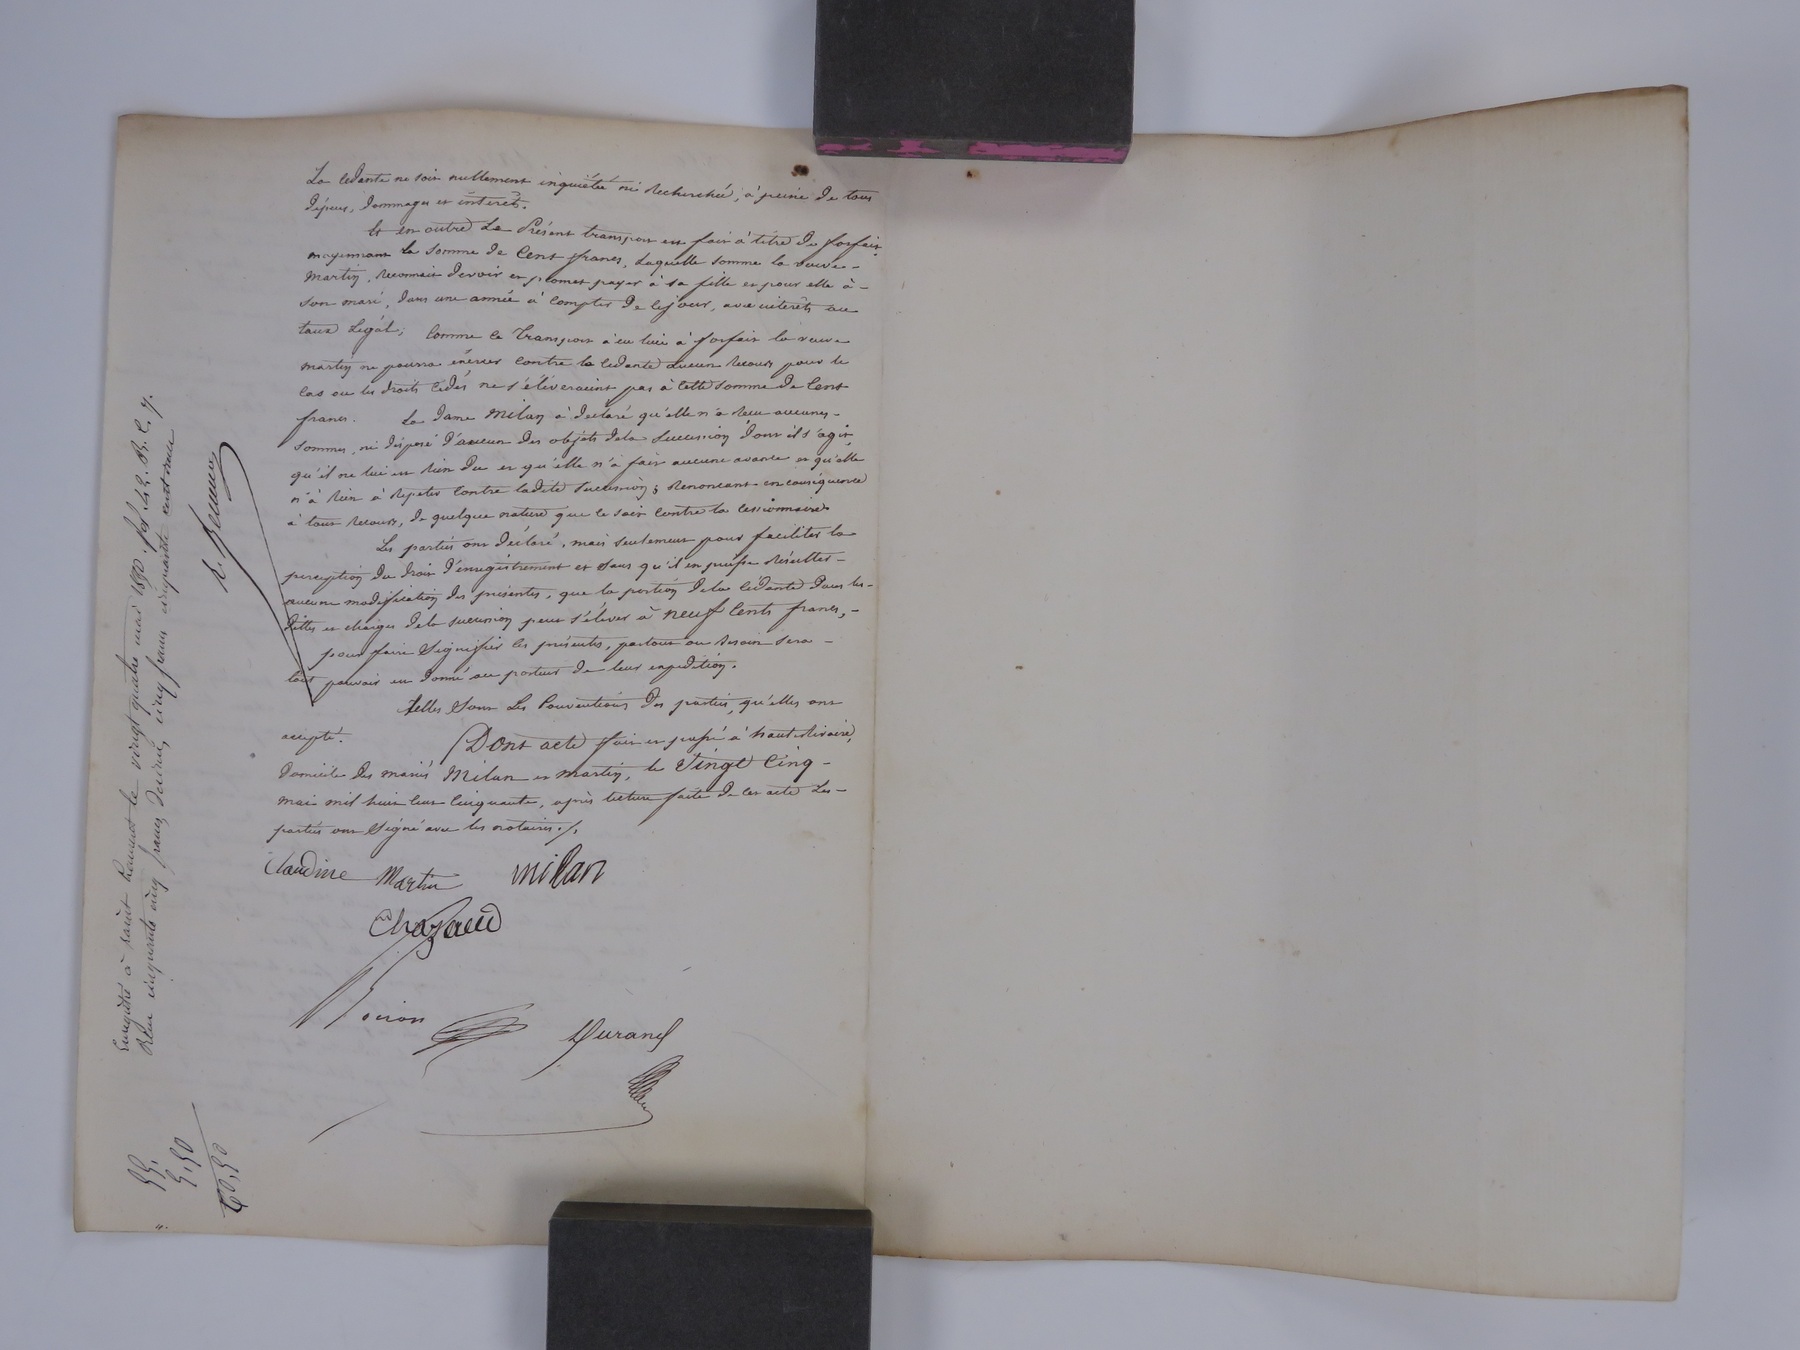 La cedante ne soit nullement inquiétée ni recherchée, à peine de tous
dépens, dommages et interets.
Et en outre Le Présent transport est fait à titre de forfait
moyennant la somme de Cent francs, Laquelle somme la veuve
Martin, reconnait devoir et promet payer à sa fille et pour elle à
son mari, dans une année à compter de ce jour, avec interêts au
taux Legal; Comme ce Transport à eu lieu à forfait la veuve
martin ne pourra exercer contre la cedante aucun recours pour le
cas ou les droits cédés ne s'éléveraient pas à cette somme de Cent
francs. La Dame Milan à declaré qu'elle n'a reçu aucunes
sommes, ni disposé d'aucun des objets de la succession dont il s'agit,
qu'il ne lui est rien du et qu'elle n'à fait aucune avance et qu'elle
n'à rien à répeter contre ladite succession; Renonçant en conséquence
à tout recours, de quelque nature que ce soit contre la cessionnaire
Les parties ont déclaré, mais seulement pour faciliter la
perception du droit d'enregistrement et sans qu'il en puisse résulter
aucune modification des présentes, que la portion de la cédante dans les
dettes et charges de la succession peut s'élever à neuf Cents francs,
pour faire Signifier les présentes, partout ou besoin sera
tout pouvoir est donné au porteur de leur expedition.
Telles sont Les Conventions des parties, qu'elles ont
accepté. Dont acte fait et passé à hauterivoire,
Domicile des mariés Milan et martin, le Vingt Cinq
mai mil huit cent cinquante, après lecture faite de cet acte Les
parties ont Signé avec les notaires ./.
Claudine Martin milan
Chazaud
Durand
Enregistré à saint Laurent le vingt quatre mai 1850. fol. 42. R. C. 7.
Reçu cinquante cinq francs, decime, cinq francs cinquante centimes
55.
5,50
60,50